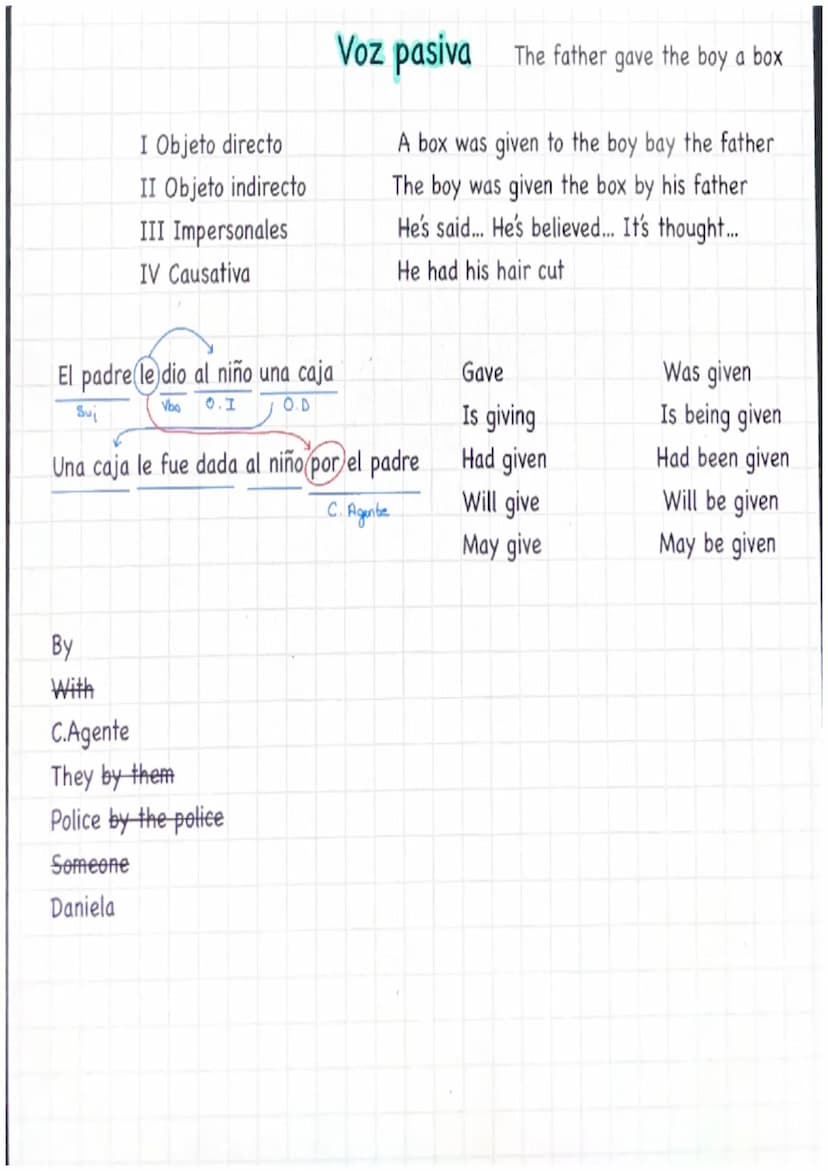 Voz pasiva The father gave the boy a box
I Objeto directo A box was given to the boy bay the father
II Objeto indirecto The boy was given the box by his father
III Impersonales He's said... He's believed... It's thought...
IV Causativa He had his hair cut
El padre le dio al niño una caja
Suj Vbo O.I O.D
Una caja le fue dada al niño por el padre
C. Agente
Gave Was given
Is giving Is being given
Had given Had been given
Will give Will be given
May give May be given
By
With
C.Agente
They by them
Police by the police
Someone
Daniela